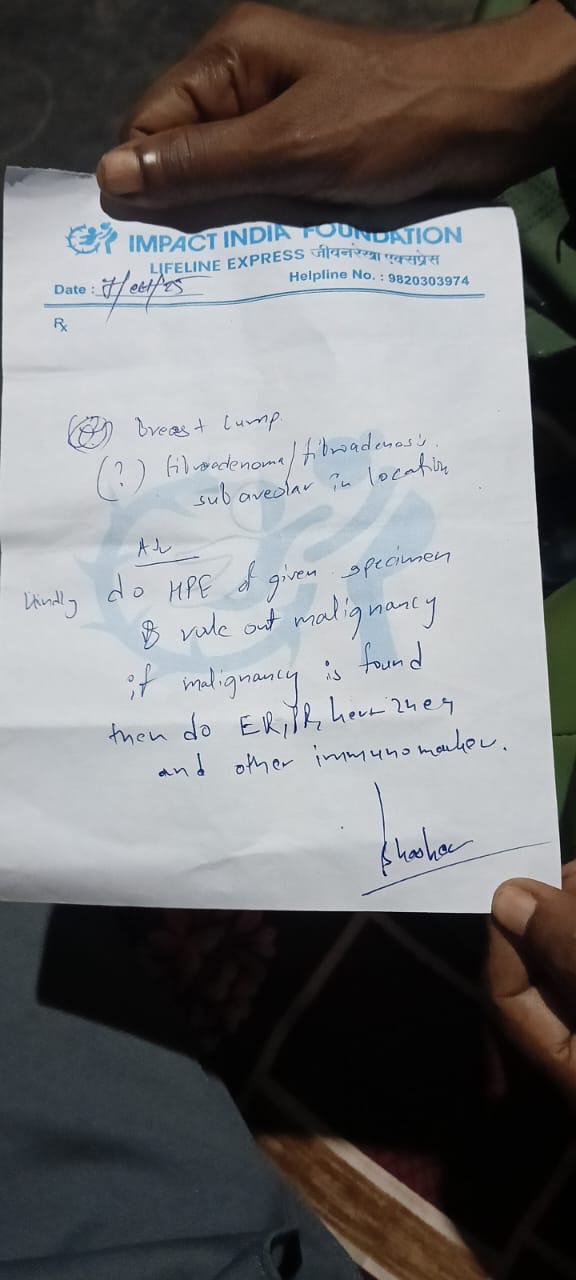 IMPACT INDIA FOUNDATION
LIFELINE EXPRESS जीवनरेखा एक्सप्रेस
Helpline No. : 9820303974
Date : 7/Oct/25
Rx
Breast lump.
(?) fibroadenoma/fibroadenosis.
sub areolar in location
Adv
Kindly do HPE of given specimen
& rule out malignancy
if malignancy is found
then do ER, PR,
and other immunomarker.